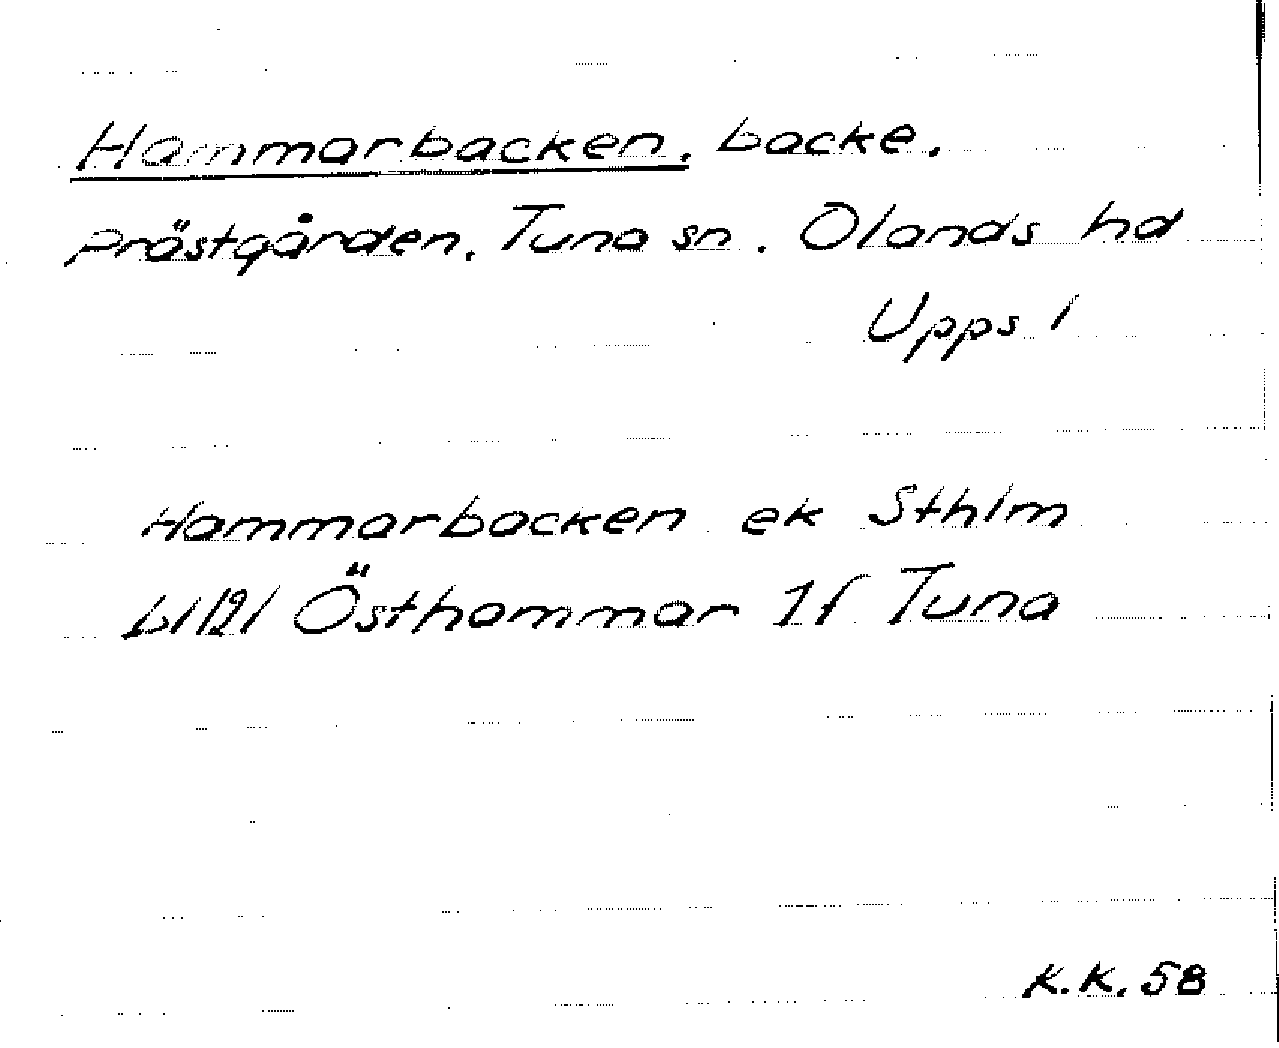 Hammarbacken, backe.
Prästgården, Tuna sn. Olands hd
Upps l
Hammarbacken ek Sthlm
Östhammar 1f Tuna
K.K. 58